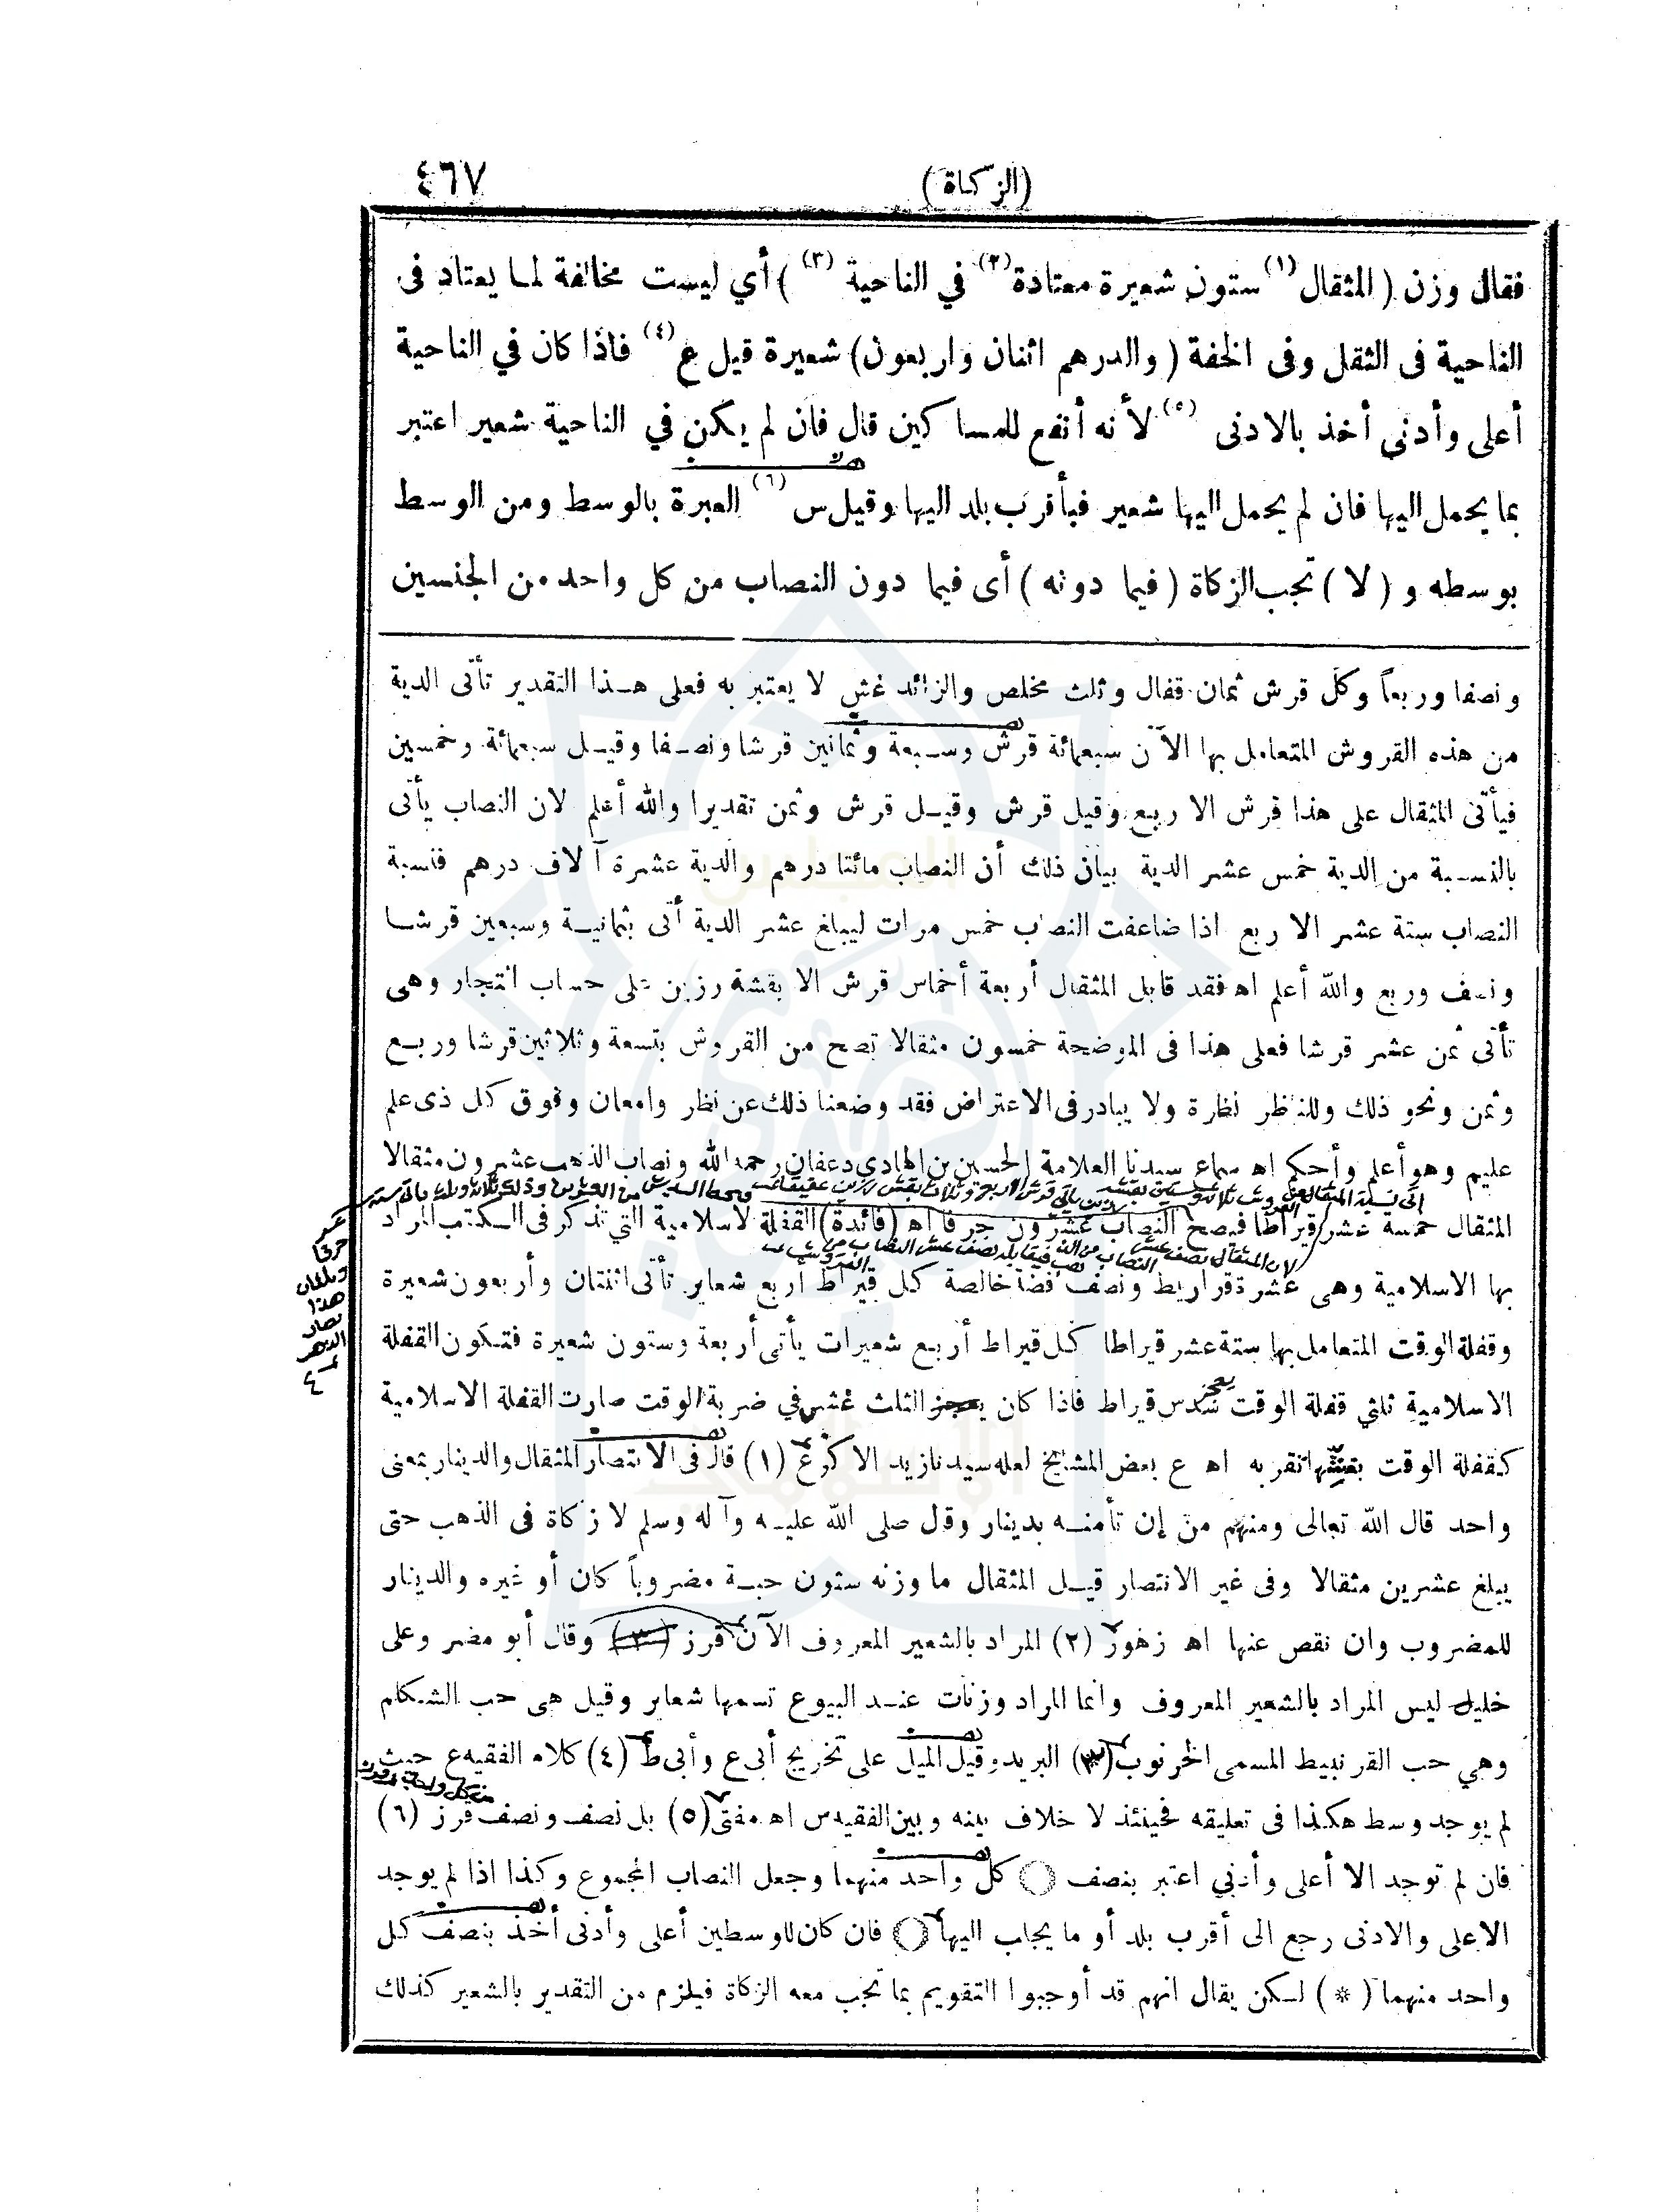 (الزكاة) ٤٦٧
فقال وزن ( المثقال (١) ستون شعيرة معتادة (٢) في الناحية (٣) ) أي ليست مخالفة لما يعتاد فى
الناحية فى الثقل وفى الخفة ( والدرهم اثنان واربعون) شعيرة قيل ع (٤) فاذا كان في الناحية
أعلى وأدنى أخذ بالادنى (٥) لأنه أنفع للمساكين قال فان لم يكن في الناحية شعير اعتبر
بما يحمل اليها فان لم يحمل اليها شعير فبأقرب بلد اليها وقيل س (٦) العبرة بالوسط ومن الوسط
بوسطه و ( لا ) تجب الزكاة ( فيما دونه ) أى فيما دون النصاب من كل واحد من الجنسين
ونصفا وربعاً وكل قرش ثمان قفال وثلث مخلص والزائد غش لا يعتبر به فعلى هذا التقدير تأتى الدية
من هذه القروش المتعامل بها الآن سبعمائة قرش وسبعة وثمانين قرشا ونصفا وقيل سبعمائة وخمسين
فيأتى المثقال على هذا قرش الا ربع وقيل قرش وقيل قرش وثمن تقديرا والله أعلم لان النصاب يأتى
بالنسبة من الدية خمس عشر الدية بيان ذلك أن النصاب مائتا درهم والدية عشرة آلاف درهم فنسبة
النصاب ستة عشر الا ربع اذا ضاعفت النصاب خمس مرات ليبلغ عشر الدية أتى بثمانية وسبعين قرشا
ونصف وربع والله أعلم اه فقد قابل المثقال أربعة أخماس قرش الا بقشة رزين على حساب التجار وهى
تأتى ثمن عشر قرشا فعلى هذا فى الموضحة خمسون مثقالا تصح من القروش بتسعة وثلاثين قرشا وربع
وثمن ونحو ذلك وللناظر نظارة ولا يبادر فى الاعتراض فقد وضعنا ذلك عن نظر وامعان وفوق كل ذى علم
عليم وهو أعلم وأحكم اه سماع سيدنا العلامة الحسين بن الهادي دعفان رحمه الله ونصاب الذهب عشرون مثقالا
المثقال خمسة عشر قيراطا فيصح النصاب عشرون حرفا اه (فائدة) القفلة الاسلامية التي تذكر فى الكتب المراد
لان المثقال نصف عشر النصاب
بها الاسلامية وهى عشرة قراريط ونصف فضة خالصة كل قيراط أربع شعاير تأتى اثنتان وأربعون شعيرة
وقفلة الوقت المتعامل بها ستة عشر قيراطا كل قيراط أربع شعيرات يأتى أربعة وستون شعيرة فتكون القفلة
الاسلامية ثلثي قفلة الوقت يعجز سدس قيراط فاذا كان الثلث غش في ضربة الوقت صارت القفلة الاسلامية
كقفلة الوقت بغشها تقر به اه ع بعض المشايخ لعله سيدنا زيد الاكوع (١) قال فى الانتصار المثقال والدينار بمعنى
واحد قال الله تعالى ومنهم من إن تأمنه بدينار وقال صلى الله عليه وآله وسلم لا زكاة فى الذهب حتى
يبلغ عشرين مثقالا وفى غير الانتصار قيل المثقال ما وزنه ستون حبة مضروباً كان أو غيره والدينار
للمضروب وان نقص عنها اه زهور (٢) المراد بالشعير المعروف الآن قرز (٣) وقال أبو مضر وعلى
خليل ليس المراد بالشعير المعروف وانما المراد وزنات عند البيوع تسمها شعاير وقيل هى حب الشكام
وهي حب القرنبيط المسمى الخرنوب (٣) البريد وقيل الميل على تخريج أبى ع وأبى ط (٤) كلام الفقيه ع حيث
لم يوجد وسط هكذا فى تعليقه فحينئذ لا خلاف بينه وبين الفقيه س اه مفتى (٥) بل نصف ونصف قرز (٦)
فان لم توجد الا أعلى وأدنى اعتبر بنصف كل واحد منهما وجعل النصاب المجموع وكذا اذا لم يوجد
الاعلى والادنى رجع الى أقرب بلد أو ما يجلب اليها فان كان للوسطين أعلى وأدنى أخذ بنصف كل
واحد منهما ( * ) لكن يقال انهم قد أوجبوا التقويم بما تجب معه الزكاة فيلزم من التقدير بالشعير كذلك